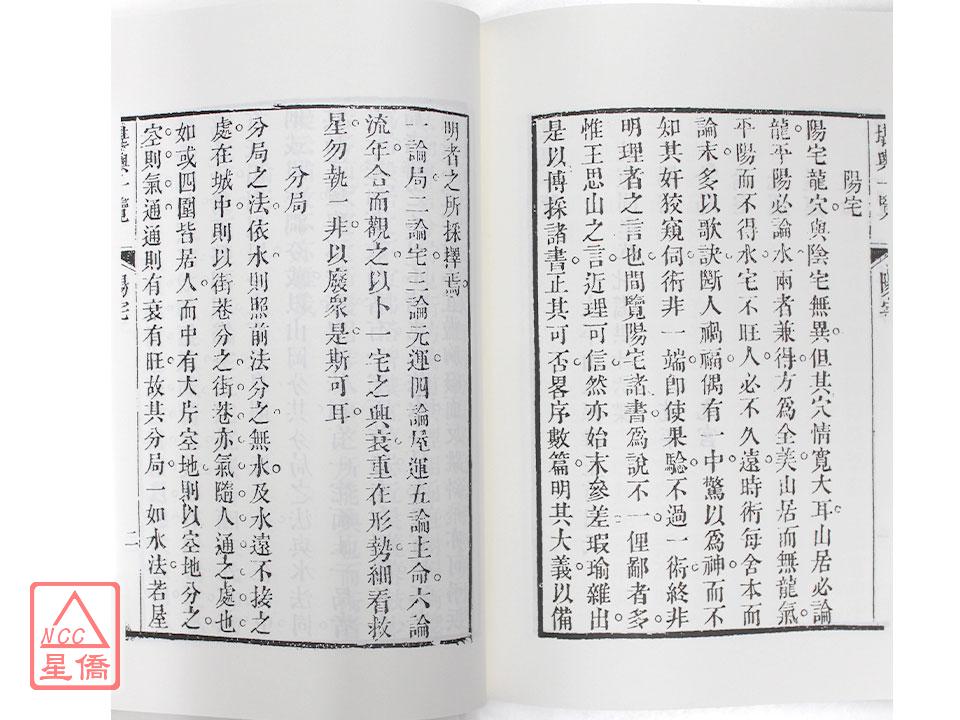 堪輿一覽
陽宅
陽宅
陽宅龍穴與陰宅無異但其穴情寬大耳山居必論
龍平陽必論水兩者兼得方為全美山居而無龍氣
平陽而不得水宅不旺人必不久遠時術每舍本而
論末多以歌訣斷人禍福偶有一中驚以為神而不
知其奸狡窺伺術非一端卽使果驗不過一術終非
明理者之言也間覽陽宅諸書為說不一俚鄙者多
惟王思山之言近理可信然亦始末參差瑕瑜雜出
是以博採諸書正其可否畧序數篇明其大義以備
明者之所採擇焉
一論局二論宅三論元運四論屋運五論主命六論
流年合而觀之以卜一宅之興衰重在形勢細看救
星勿執一非以廢衆是斯可耳
分局
分局之法依水則照前法分之無水及水遠不接之
處在城中則以街巷分之街巷亦氣隨人通之處也
如或四圍皆居人而中有大片空地則以空地分之
空則氣通通則有衰有旺故其分局一如水法若屋
堪輿一覽
陽宅
二
NCC
星僑